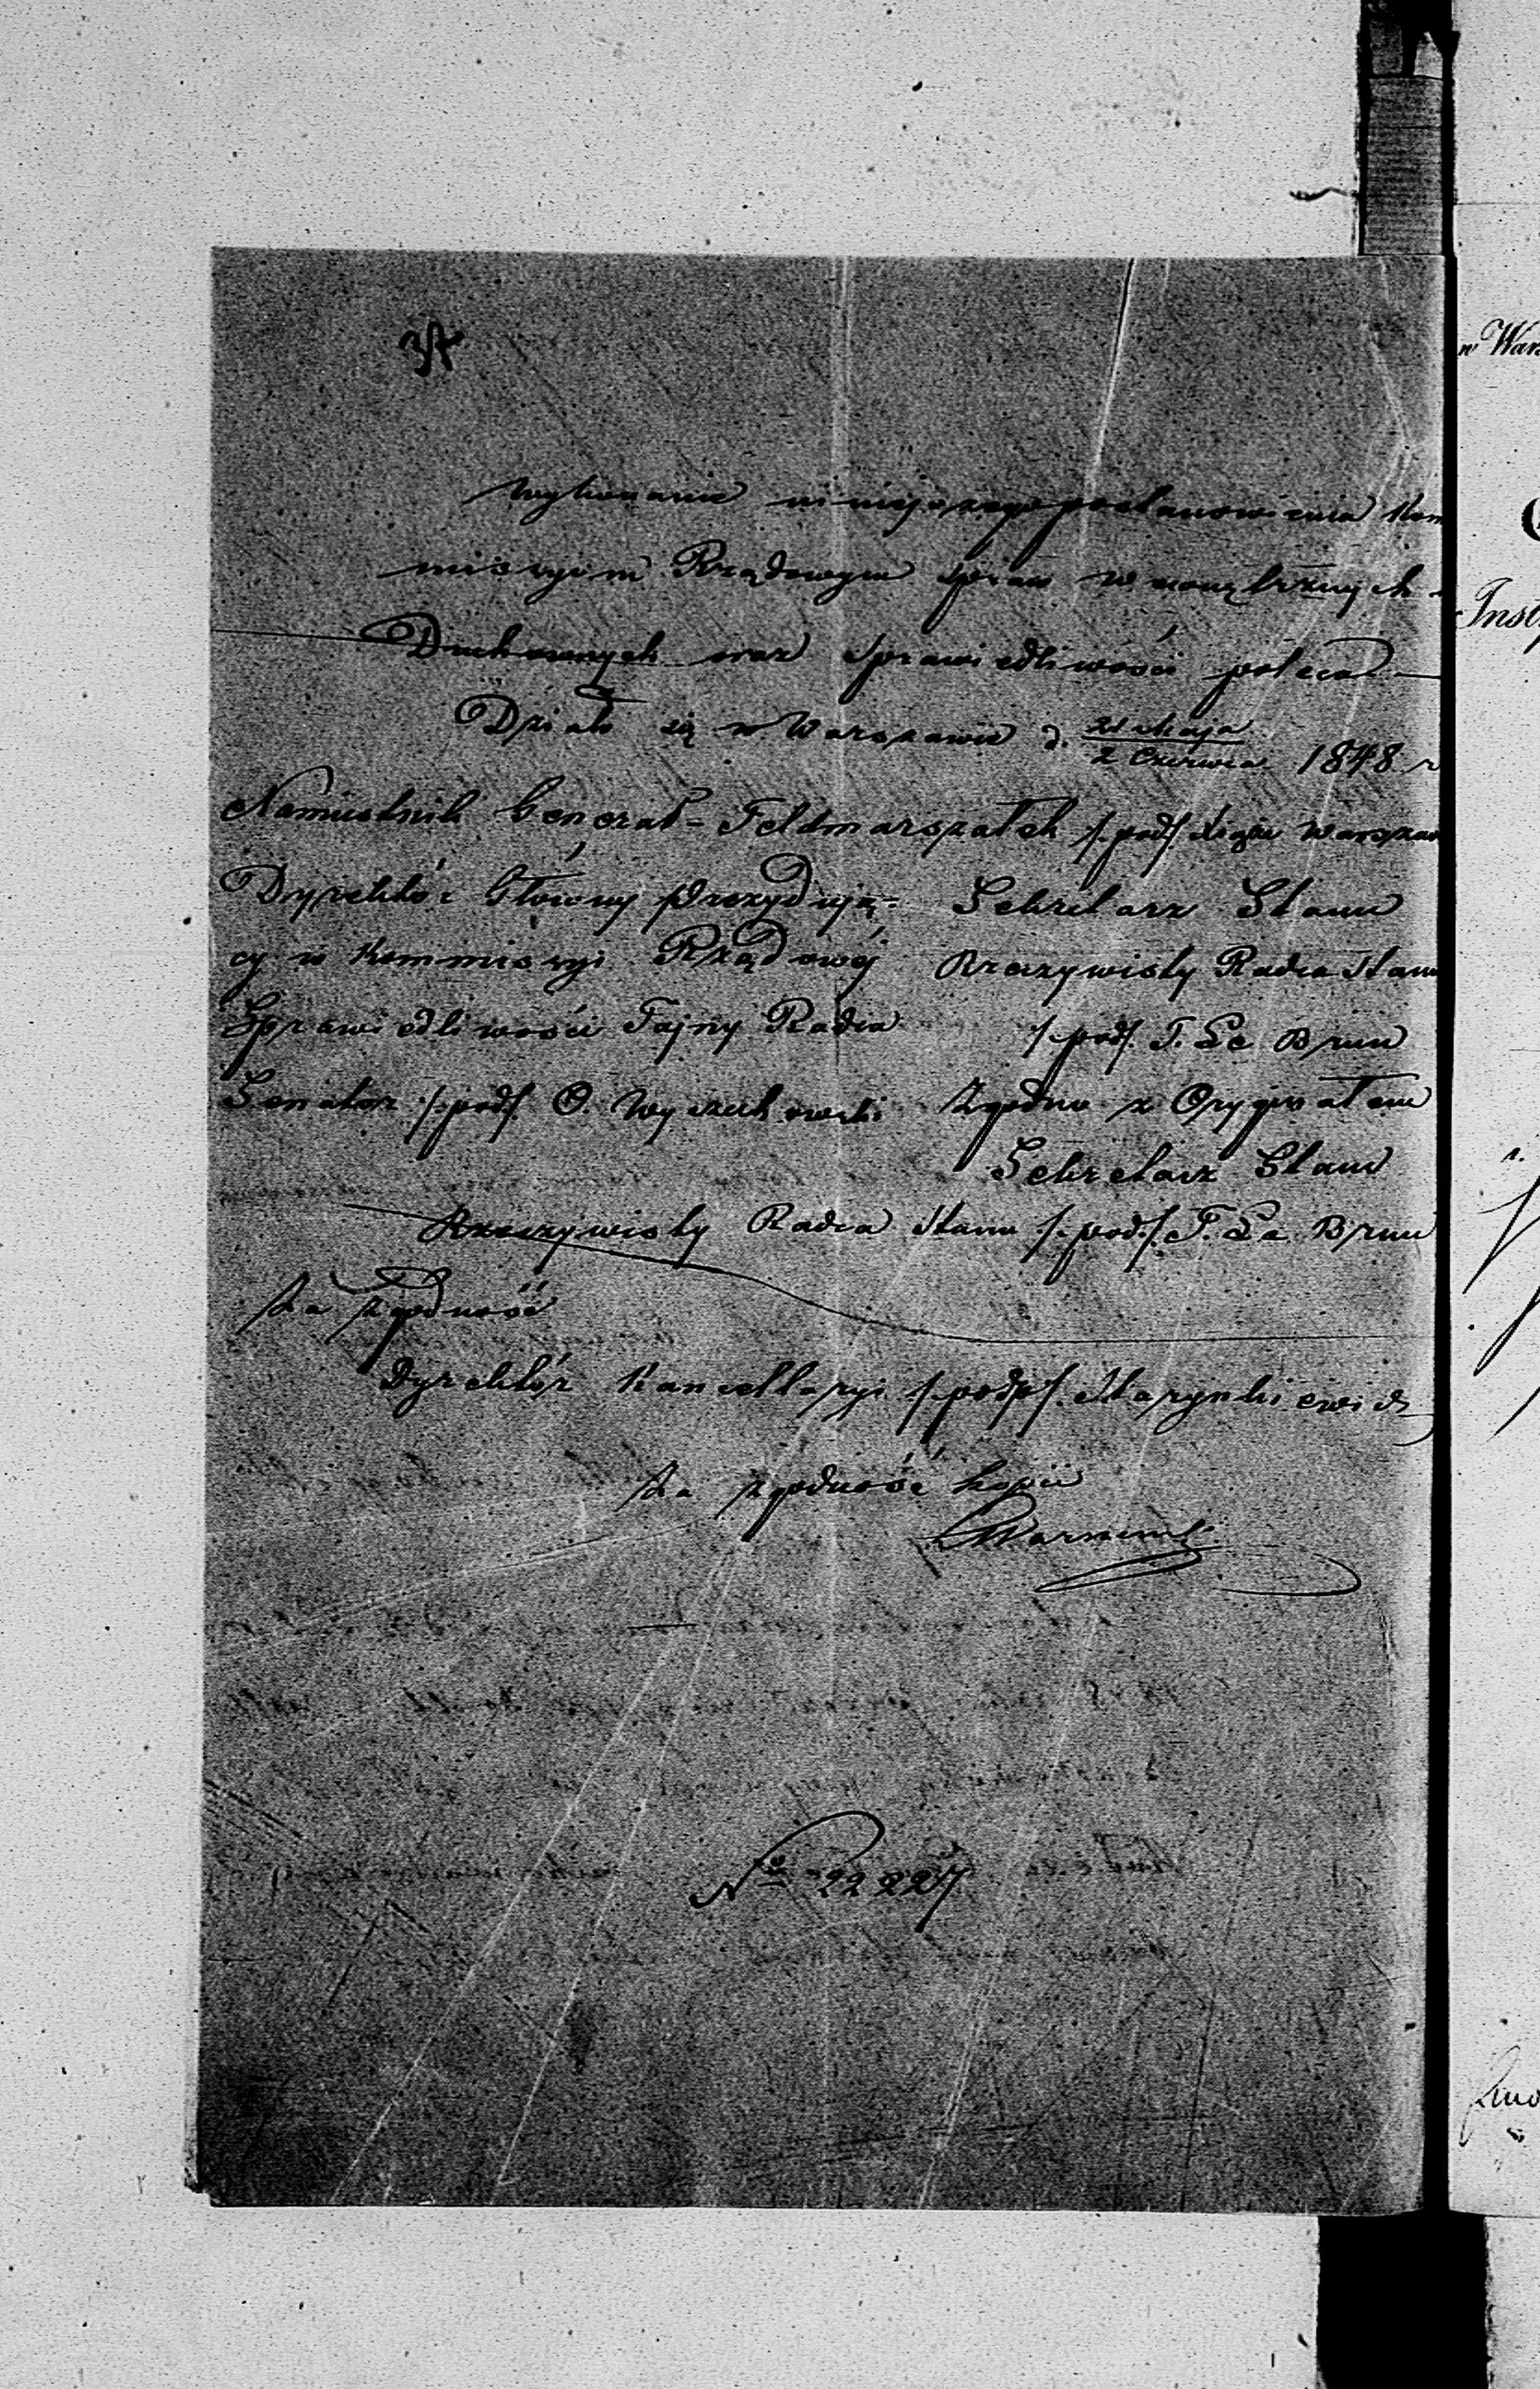 37
Wykonanie niniejszego postanowienia Kom
missyiom Rządowym Spraw Wewnętrznych
Duchownych oraz Sprawiedliwości poleca
Działo się w Warszawie d. 21 Maja / 2 Czerwca 1848 r
Namiestnik Generał-Feldmarszałek /.pod/. Xiąże Warszaw
Dyrektór Główny Prezydują=
cy w Kommissyi Rządowéj
Sprawiedliwości Tajny Radca
Senator /.pod/. O. Wyczechowski
Sekretarz Stanu
Rzeczywisty Radca Stanu
/.pod/. T. Le Brun
Zgodno z Oryginałem
Sekretarz Stanu
Rzeczywisty Radca Stanu /.pod./. T. Le Brun
Za zgodność
Dyrektór Kancellaryi /.podp/. Martynkiewicz
Za zgodność kopii
No 22227
w War
Inst